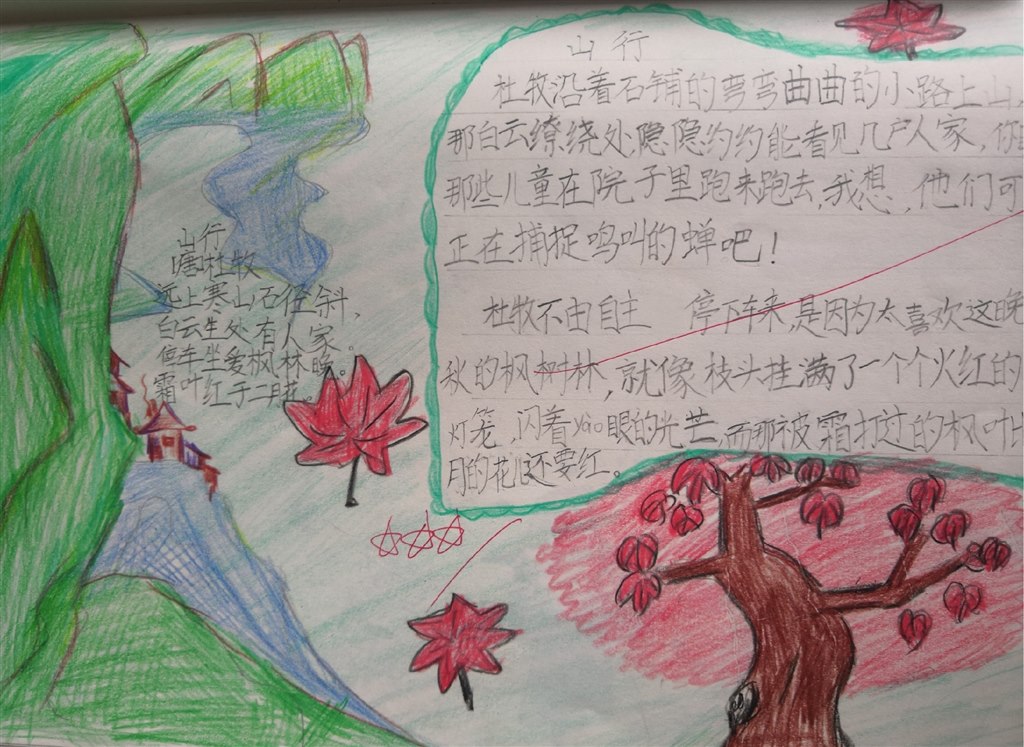 山行
唐杜牧
远上寒山石径斜，
白云生处有人家。
停车坐爱枫林晚。
霜叶红于二月花。
山行
杜牧沿着石铺的弯弯曲曲的小路上山,
那白云缭绕处隐隐约约能看见几户人家,
那些儿童在院子里跑来跑去,我想,他们可
正在捕捉鸣叫的蝉吧!
杜牧不由自主 停下车来,是因为太喜欢这晚
秋的枫树林,就像枝头挂满了一个个火红的
灯笼,闪着yao眼的光芒,而那被霜打过的枫叶比
月的花儿还要红。